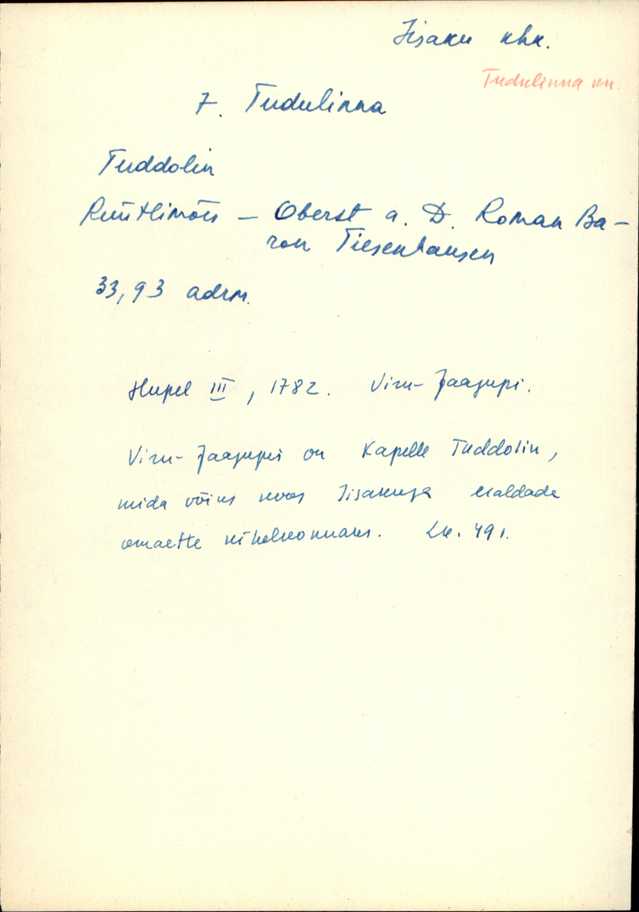 Iisaku khk.
Tudulinna kn.
7. Tudulinna
Tuddolin
Rüütlimõis – Oberst a. D. Roman Ba-
ron Tiesenhausen
33,93 adrm.
Hupel III, 1782. Viru-Jaagupi.
Viru-Jaagupis on Kapelle Tuddolin,
mida võins koos Iisakuga eraldada
omaette kihelkonnaks. Lk. 491.